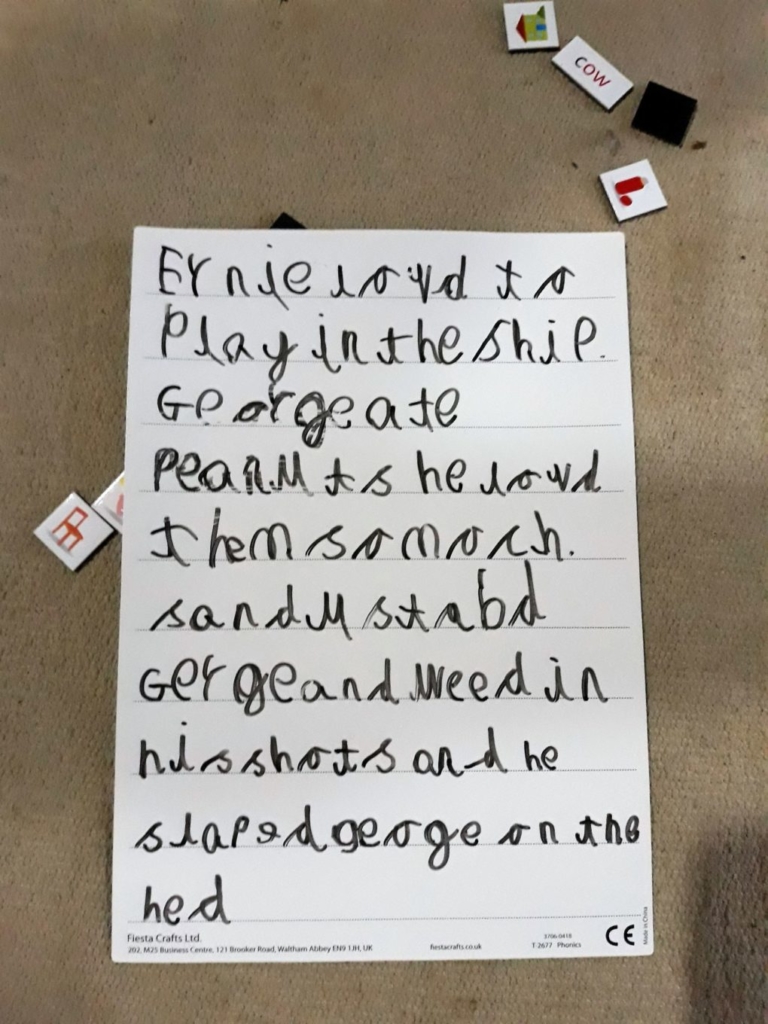 cow
Ernie lovd to
Play in the ship.
George ate
peanuts he lovd
them so moch.
sandy stabd
Gerge and weed in
his shots and he
slaped geoge on the
hed
Fiesta Crafts Ltd.
202, M25 Business Centre, 121 Brooker Road, Waltham Abbey EN9 1JH, UK
fiestacrafts.co.uk
3706-0418
T-2677 Phonics
CE
Made in China